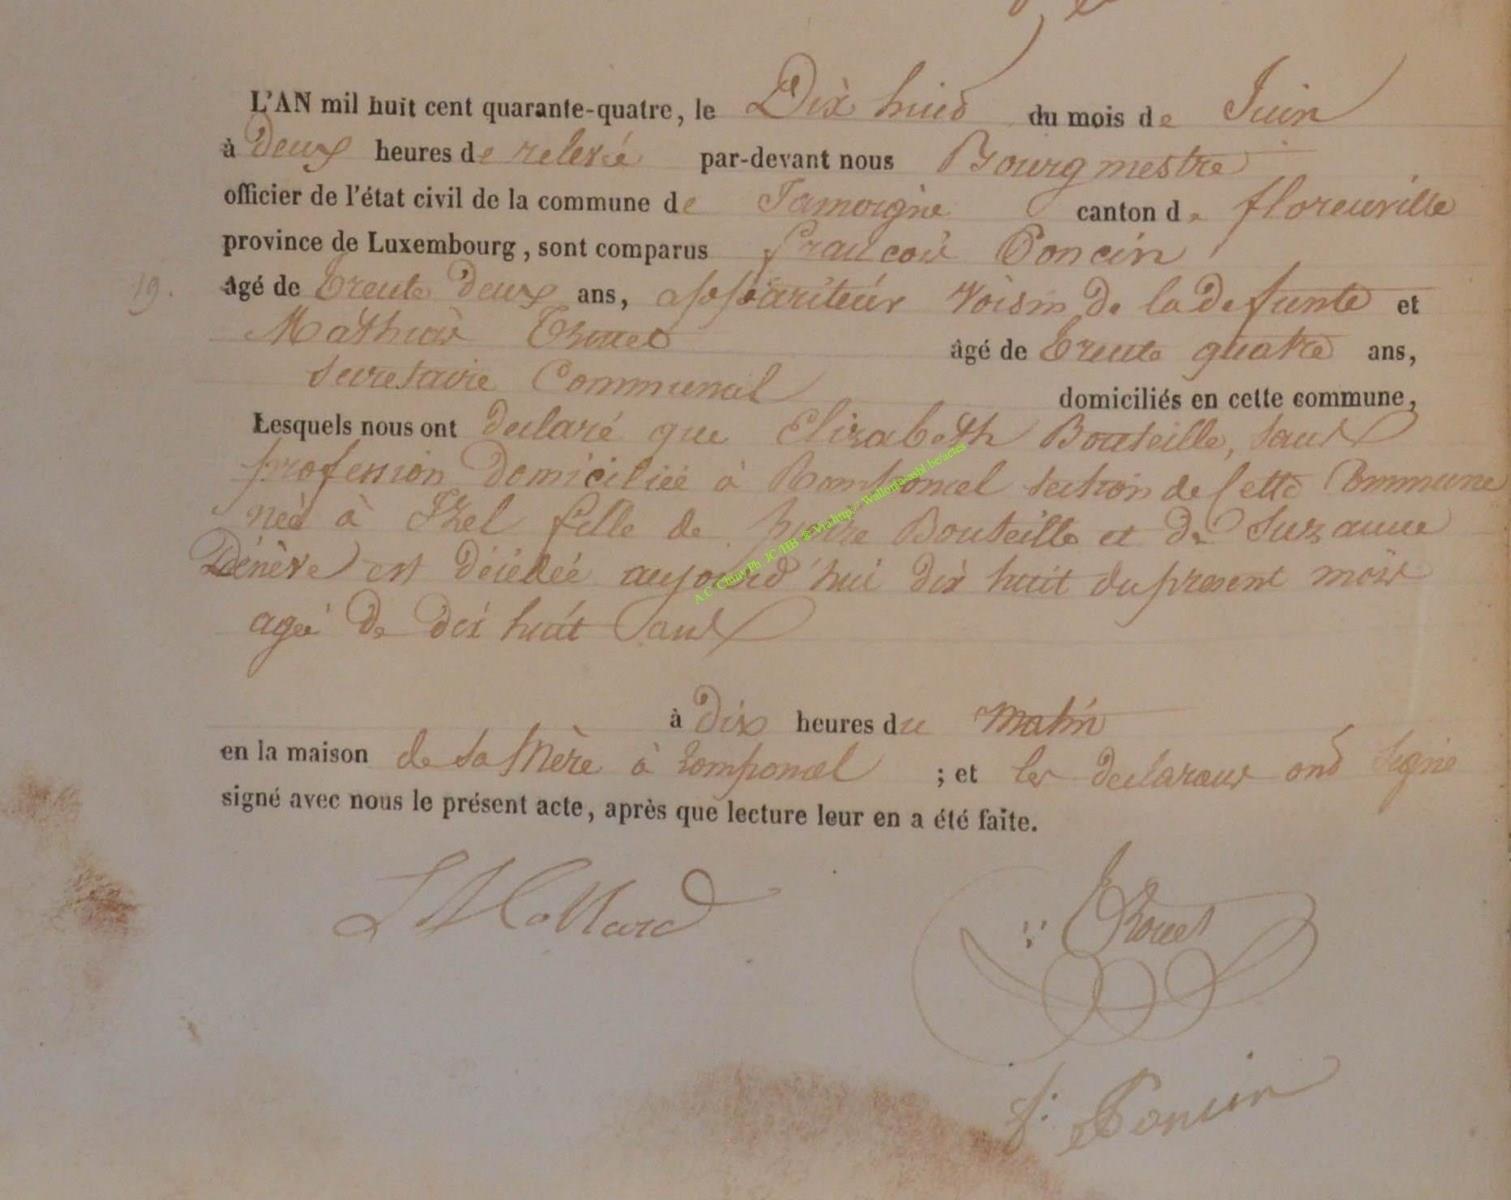 L'AN mil huit cent quarante-quatre, le Dix huit du mois de Juin
à Deux heures de relevé par-devant nous Bourgmestre
officier de l'état civil de la commune de Jamoigne canton de florenville
province de Luxembourg, sont comparus francois Poncin
19. âgé de trente deux ans, appariteur voisin de la defunte et
Mathias Trouet âgé de trente quatre ans,
secretaire Communal domiciliés en cette commune,
Lesquels nous ont declaré que Elisabeth Bouteille, sans
profession domiciliée à Romponcel section de cette Commune
née à Izel fille de pierre Bouteille et de Suzanne
Dénève est décédée aujourd'hui dix huit du present mois
agée de dix huit ans
à dix heures du matin
en la maison de sa Mère à romponcel ; et les declarans ont Signé
signé avec nous le présent acte, après que lecture leur en a été faite.
Collard
Trouet
f: Poncin